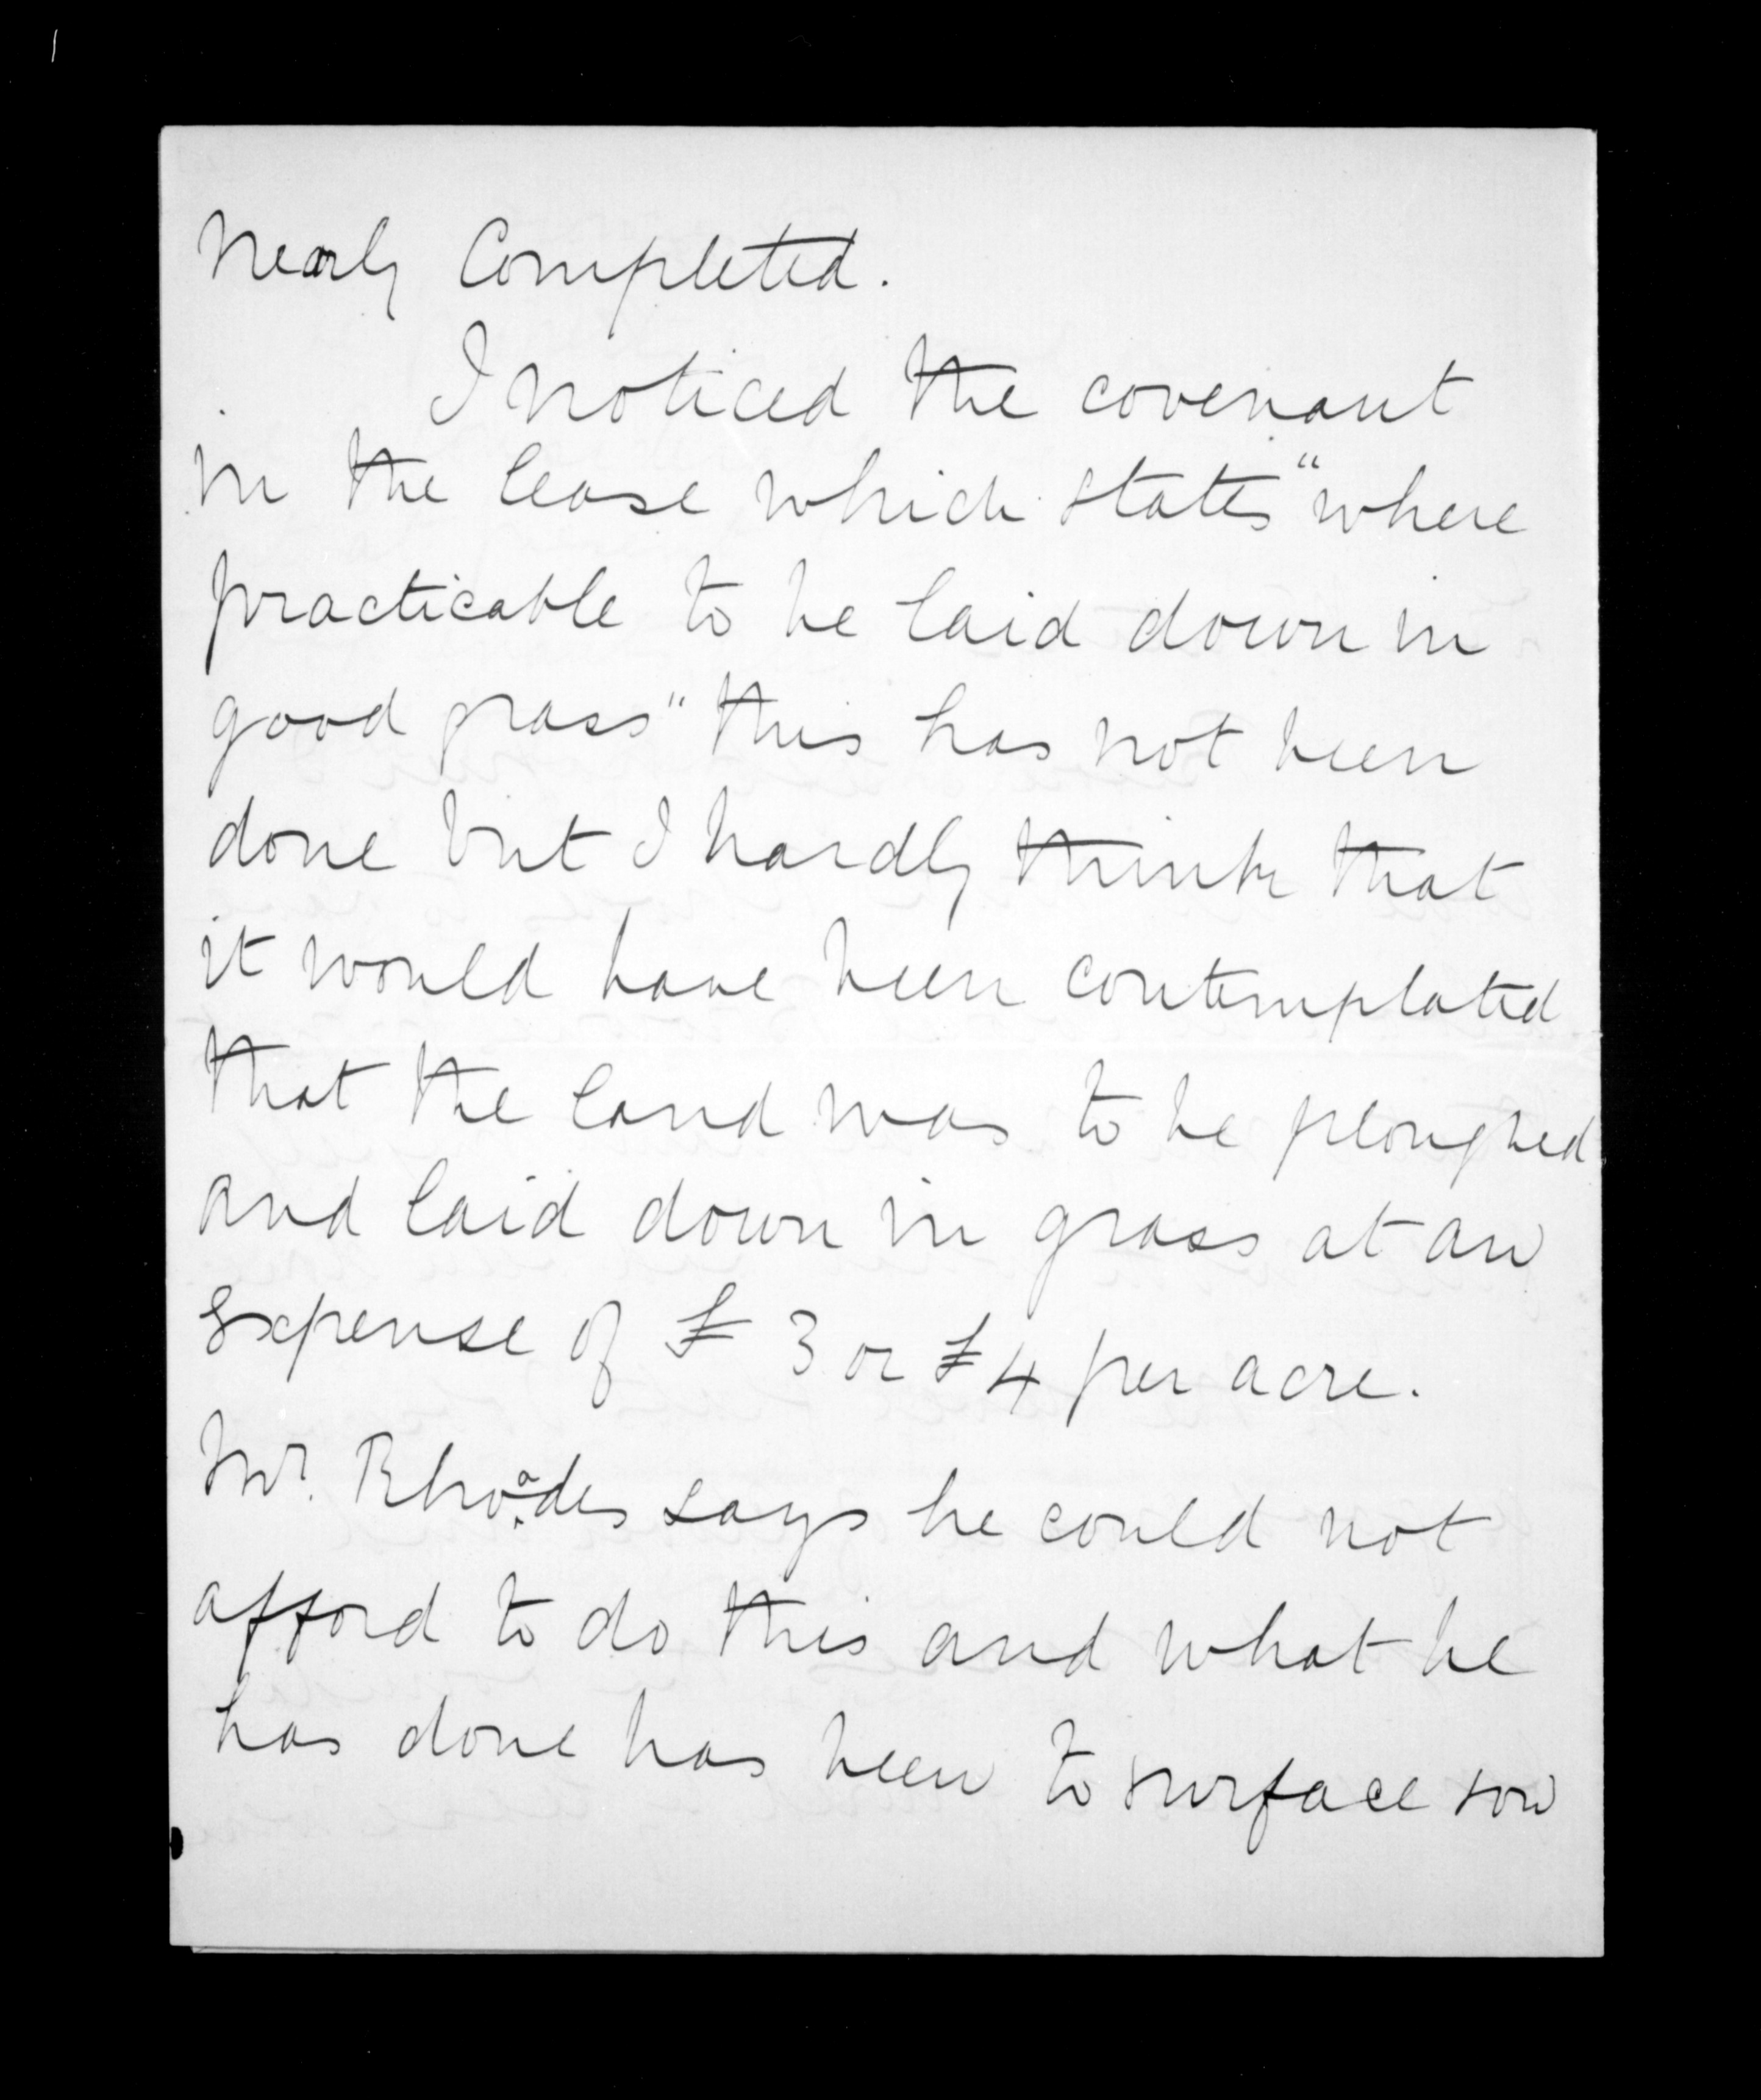 Nearly Completed.
I noticed the covenant
in the lease which states "where
practicable to be laid down in
good grass" this has not been
done but I hardly think that
it would have been contemplated
that the land was to be ploughed
and laid down in grass at an
expense of £ 3 or £4 per acre.
Mr. Rhoades says he could not
afford to do this and what he
has done has been to surface sow